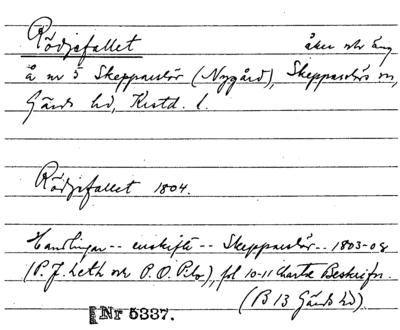 Rödjefallet åker och äng
å nr 5 Skepparslöv (Nygård), Skepparslövs sn,
Gärds hd, Kristd. l.
Rödjefallet 1804.
Handlingar -- enskifte -- Skepparslöv -- 1803-08
(P. J. Leth och P. O.), fol 10-11 Charta Beskrifn.
(B 13 Gärds hd).
Nr 5337.